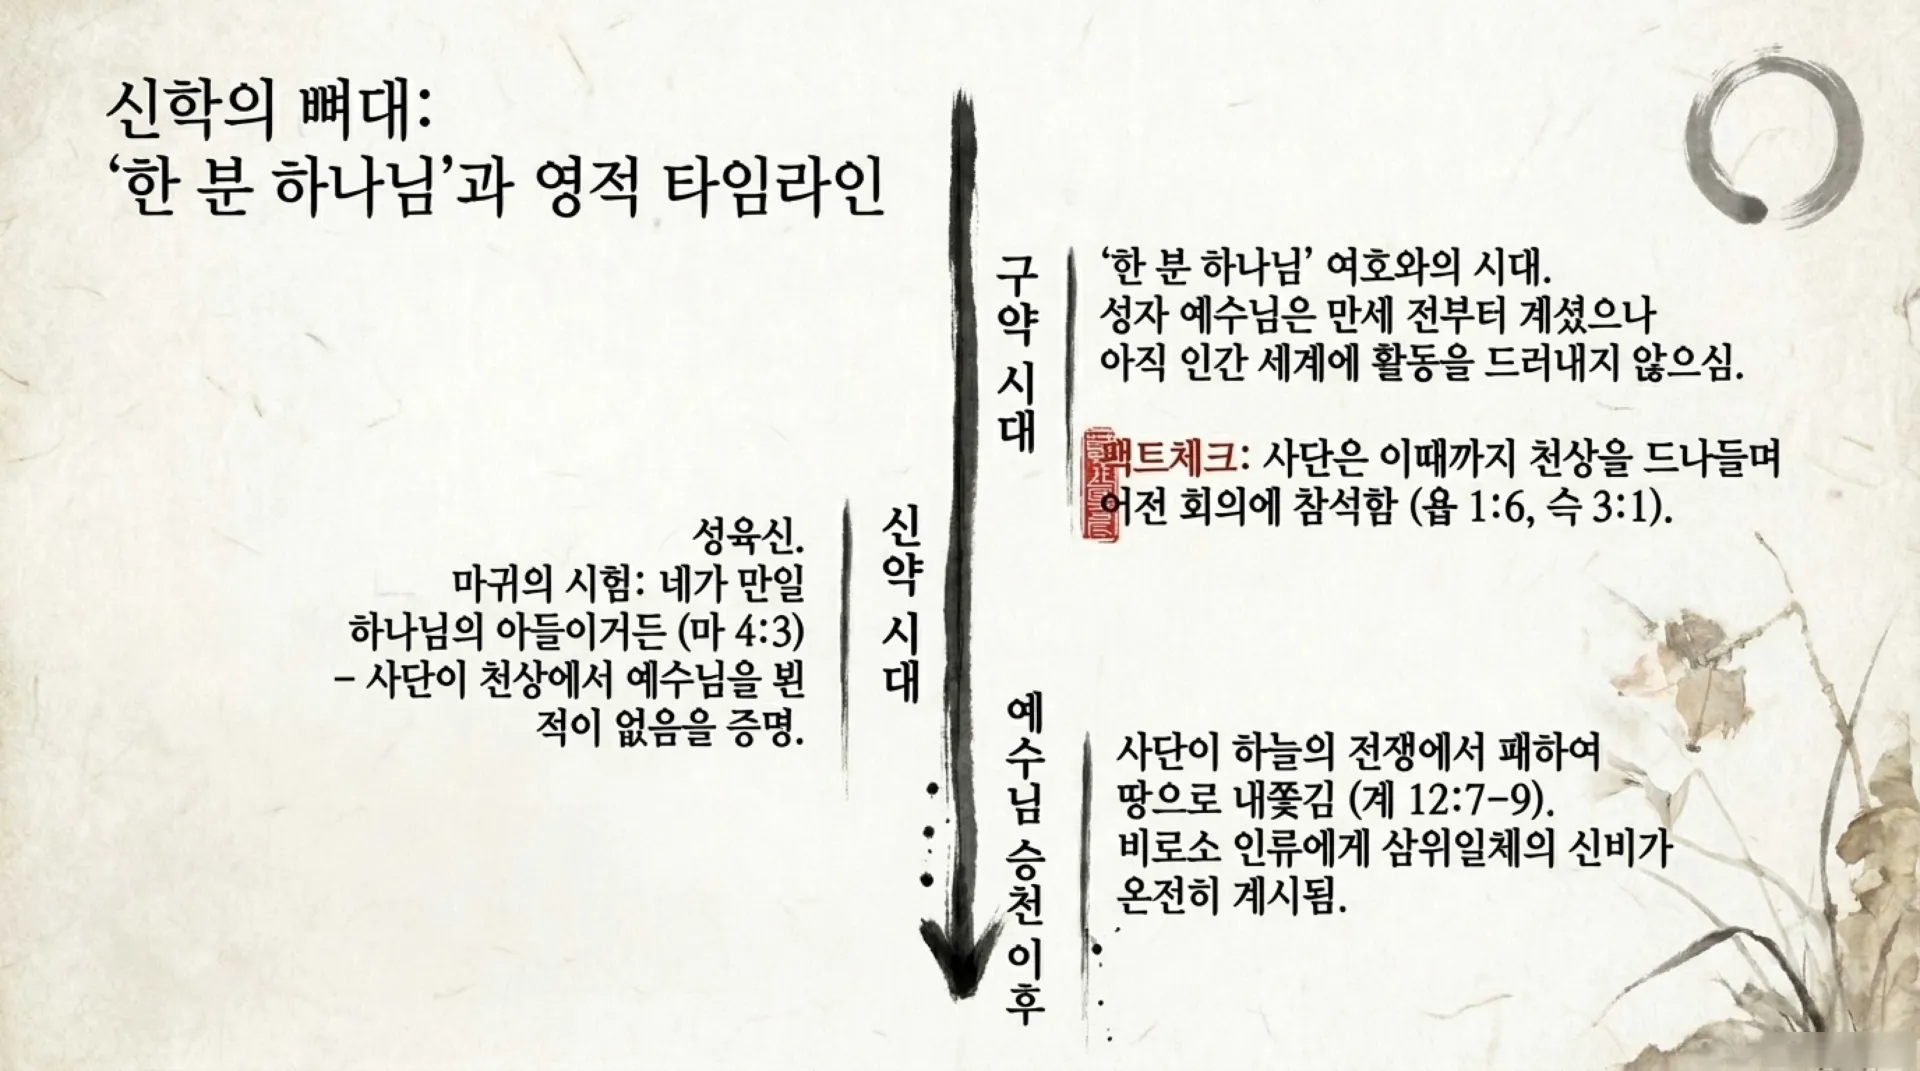 신학의 뼈대:
‘한 분 하나님’과 영적 타임라인
구약 시대
‘한 분 하나님’ 여호와의 시대.
성자 예수님은 만세 전부터 계셨으나
아직 인간 세계에 활동을 드러내지 않으심.
팩트체크: 사단은 이때까지 천상을 드나들며
어전 회의에 참석함 (욥 1:6, 슥 3:1).
신약 시대
성육신.
마귀의 시험: 네가 만일
하나님의 아들이거든 (마 4:3)
– 사단이 천상에서 예수님을 뵌
적이 없음을 증명.
예수님 승천 이후
사단이 하늘의 전쟁에서 패하여
땅으로 내쫓김 (계 12:7–9).
비로소 인류에게 삼위일체의 신비가
온전히 계시됨.